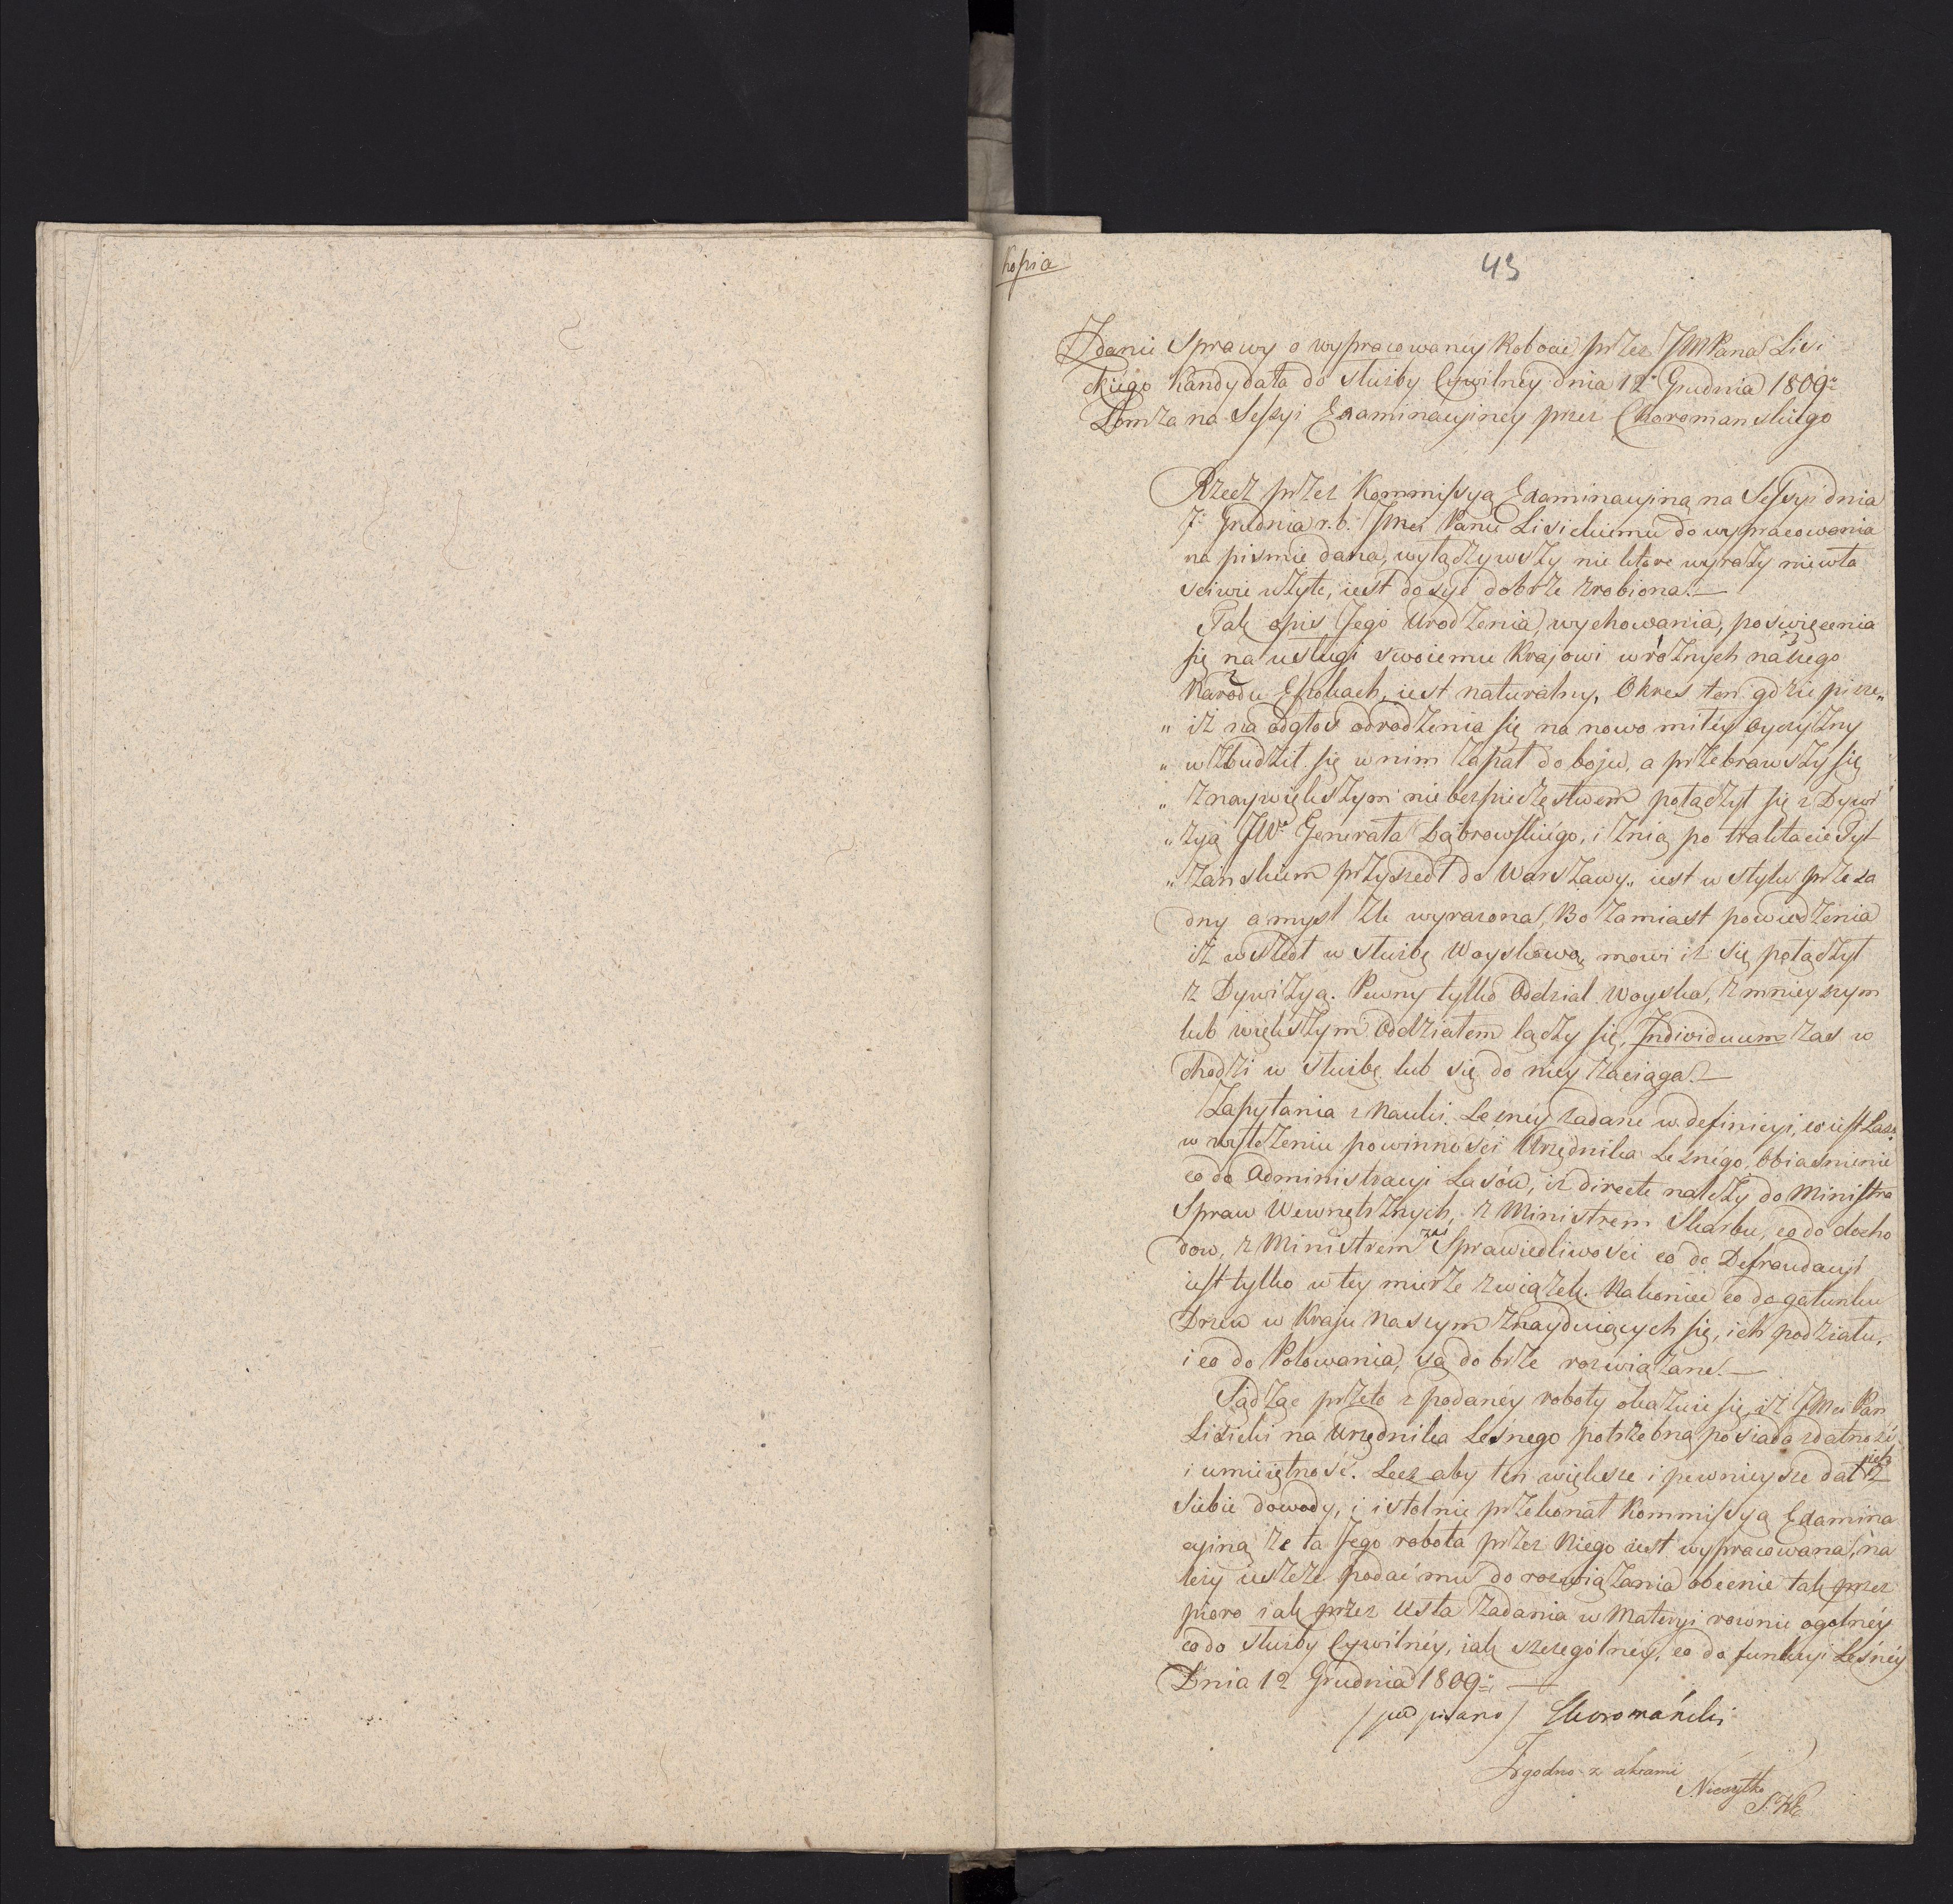 kopia
43
Zdanie Sprawy o wypracowaney Robocie przez JMPana Lisi
ckiego Kandydata do służby Cywilney dnia 12° Grudnia 1809°
Łomza na Sessyi Examinacyiney przez Choromanskiego
Rzecz przez Kommissyą Examinacyiną na Sessyi dnia
7° Grudnia r. b. JMci Panu Lisickiemu do wypracowania
na pismie dana, wyłączywszy nie ktore wyrazy niewła
sciwie użyte, iest dosyć dobrze zrobiona.—
Tak opis Jego Urodzenia, wychowania, poswięcenia
się na usługi swoiemu Krajowi w różnych naszego
Narodu Epokach, iest naturalny, Okres ten gdzie pisze„
„ iż na odgłos odrodzenia się na nowo miłey oyczyzny
„ wzbudził się w nim zapał do boju, a przebrawszy się
„ z naywiększym niebezpieczęstwem połączył się z Dywi
„ zyą JW° Generała Dąbrowskiégo, i z nią po traktacie Tyl
„ zańskiem przyszedł do Warszawy„ iest w stylu przesa
dny a mysl źle wyrażona, Bo zamiast powiedzenia
iż wszedł w służbę Woyskową mowi iż się połączył
z Dywizyą. Pewny tylko Oddział Woyska, z mnieyszym
lub większym Oddziałem łączy się, Individuum zas w
chodzi w służbę lub się do niey zaciąga.—
Zapytania z Nauki Leśney zadane w definicyi, co iest Las,
w wyłożeniu powinności Urzędnika Leśnégo, obiasnienie
co do Administracyi Lasów, iż directe należy do Ministra
Spraw Wewnętrznych, z Ministrem Skarbu, co do docho
dow, z Ministrem zaś Sprawiedliwosci co do Defraudacyi
iest tylko w tey mierze związek. Nakoniec co do gatunku
Drzew w Kraju Naszym znayduiących się, ich podziału,
i co do Polowania, są dobrze rozwiązane.—
Sądząc przeto z podaney roboty okazuie się, iż JMci Pan
Lisicki na Urzędnika Leśnego potrzebną posiada zdatność
i umieiętność. Lecz aby ten większe i pewnieysze dał z
siebie dowody, i istotnie przekonał Kommissyą Examina
cyiną że ta Jego robota przez Niego iest wypracowana, na
leży ieszcze podać mu do rozwiązania obecnie tak przez
pioro iak przez Usta Zadania w Materyi rownie ogolnéy
co do służby Cywilnéy, iak szczególney, co do funkcyi Leśnéy
Dnia 12 Grudnia 1809° —
/podpisano/ Choromański
Zgodno z aktami